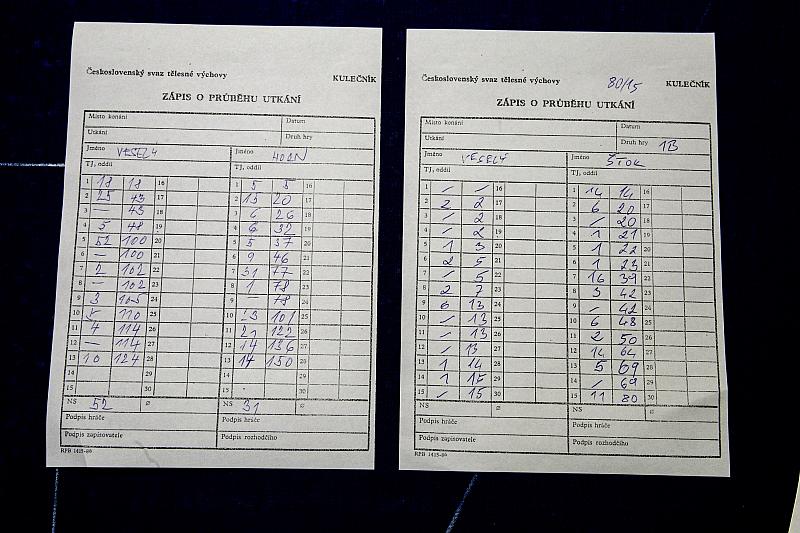 Československý svaz tělesné výchovy
KULEČNÍK
ZÁPIS O PRŮBĚHU UTKÁNÍ
Místo konání
Datum
Utkání
Druh hry
Jméno VESELÝ Jméno
TJ, oddíl TJ, oddíl
1 18 18 16 1 5 5 16
2 25 43 17 2 15 20 17
3 — 43 18 3 6 26 18
4 5 48 19 4 6 32 19
5 52 100 20 5 5 37 20
6 — 100 21 6 9 46 21
7 2 102 22 7 31 77 22
8 — 102 23 8 1 78 23
9 3 105 24 9 — 78 24
10 5 110 25 10 23 101 25
11 4 114 26 11 21 122 26
12 — 114 27 12 14 136 27
13 10 124 28 13 14 150 28
14 29 14 29
15 30 15 30
NS 52 ø NS 31 ø
Podpis hráče Podpis hráče
Podpis zapisovatele Podpis rozhodčího
RPB 1415-80
Československý svaz tělesné výchovy
80/15
KULEČNÍK
ZÁPIS O PRŮBĚHU UTKÁNÍ
Místo konání
Datum
Utkání
Druh hry 1B
Jméno VESELÝ Jméno ŠTOK
TJ, oddíl TJ, oddíl
1 / / 16 1 14 14 16
2 2 2 17 2 6 20 17
3 / 2 18 3 / 20 18
4 / 2 19 4 1 21 19
5 1 3 20 5 1 22 20
6 2 5 21 6 1 23 21
7 / 5 22 7 16 39 22
8 2 7 23 8 3 42 23
9 6 13 24 9 / 42 24
10 / 13 25 10 6 48 25
11 / 13 26 11 2 50 26
12 / 13 27 12 14 64 27
13 1 14 28 13 5 69 28
14 1 15 29 14 / 69 29
15 / 15 30 15 11 80 30
NS ø NS ø
Podpis hráče Podpis hráče
Podpis zapisovatele Podpis rozhodčího
RPB 1415-80